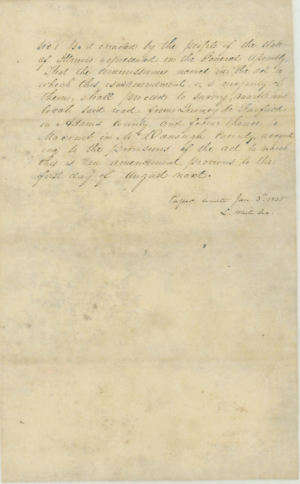 Sec 1 Be it enacted by the people of the State
of Illinois represented in the General Assembly
That the commissioners named in the act to
which this is an amendment, or a majority of
them, shall proceed to survey, mark and
locate said road from Quincy to Fairfield
in Adams County and from thence to
Macomb in McDonough County, accord
ing to the provisions of the act to which
this is an amendment previous to the
first day of August next.
Passed Senate Jan. 3d 1835
L. White Sec.